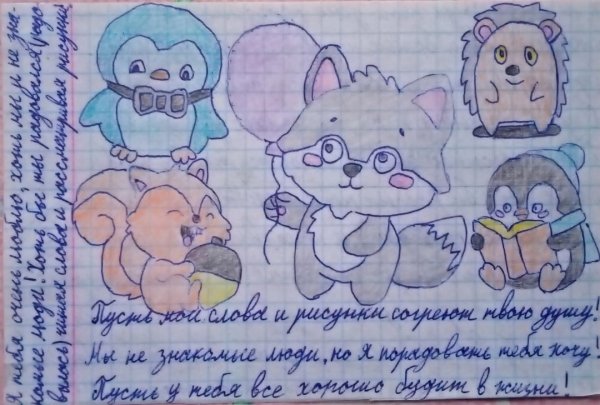 Я тебя очень люблю, хоть мы и не зна-
комые люди! Хоть бы ты радовался (радо-
валась) читая слова и рассматривая рисунки!
Пусть мои слова и рисунки согреют твою душу!
Мы не знакомые люди, но я порадовать тебя хочу!
Пусть у тебя все хорошо будит в жизни!